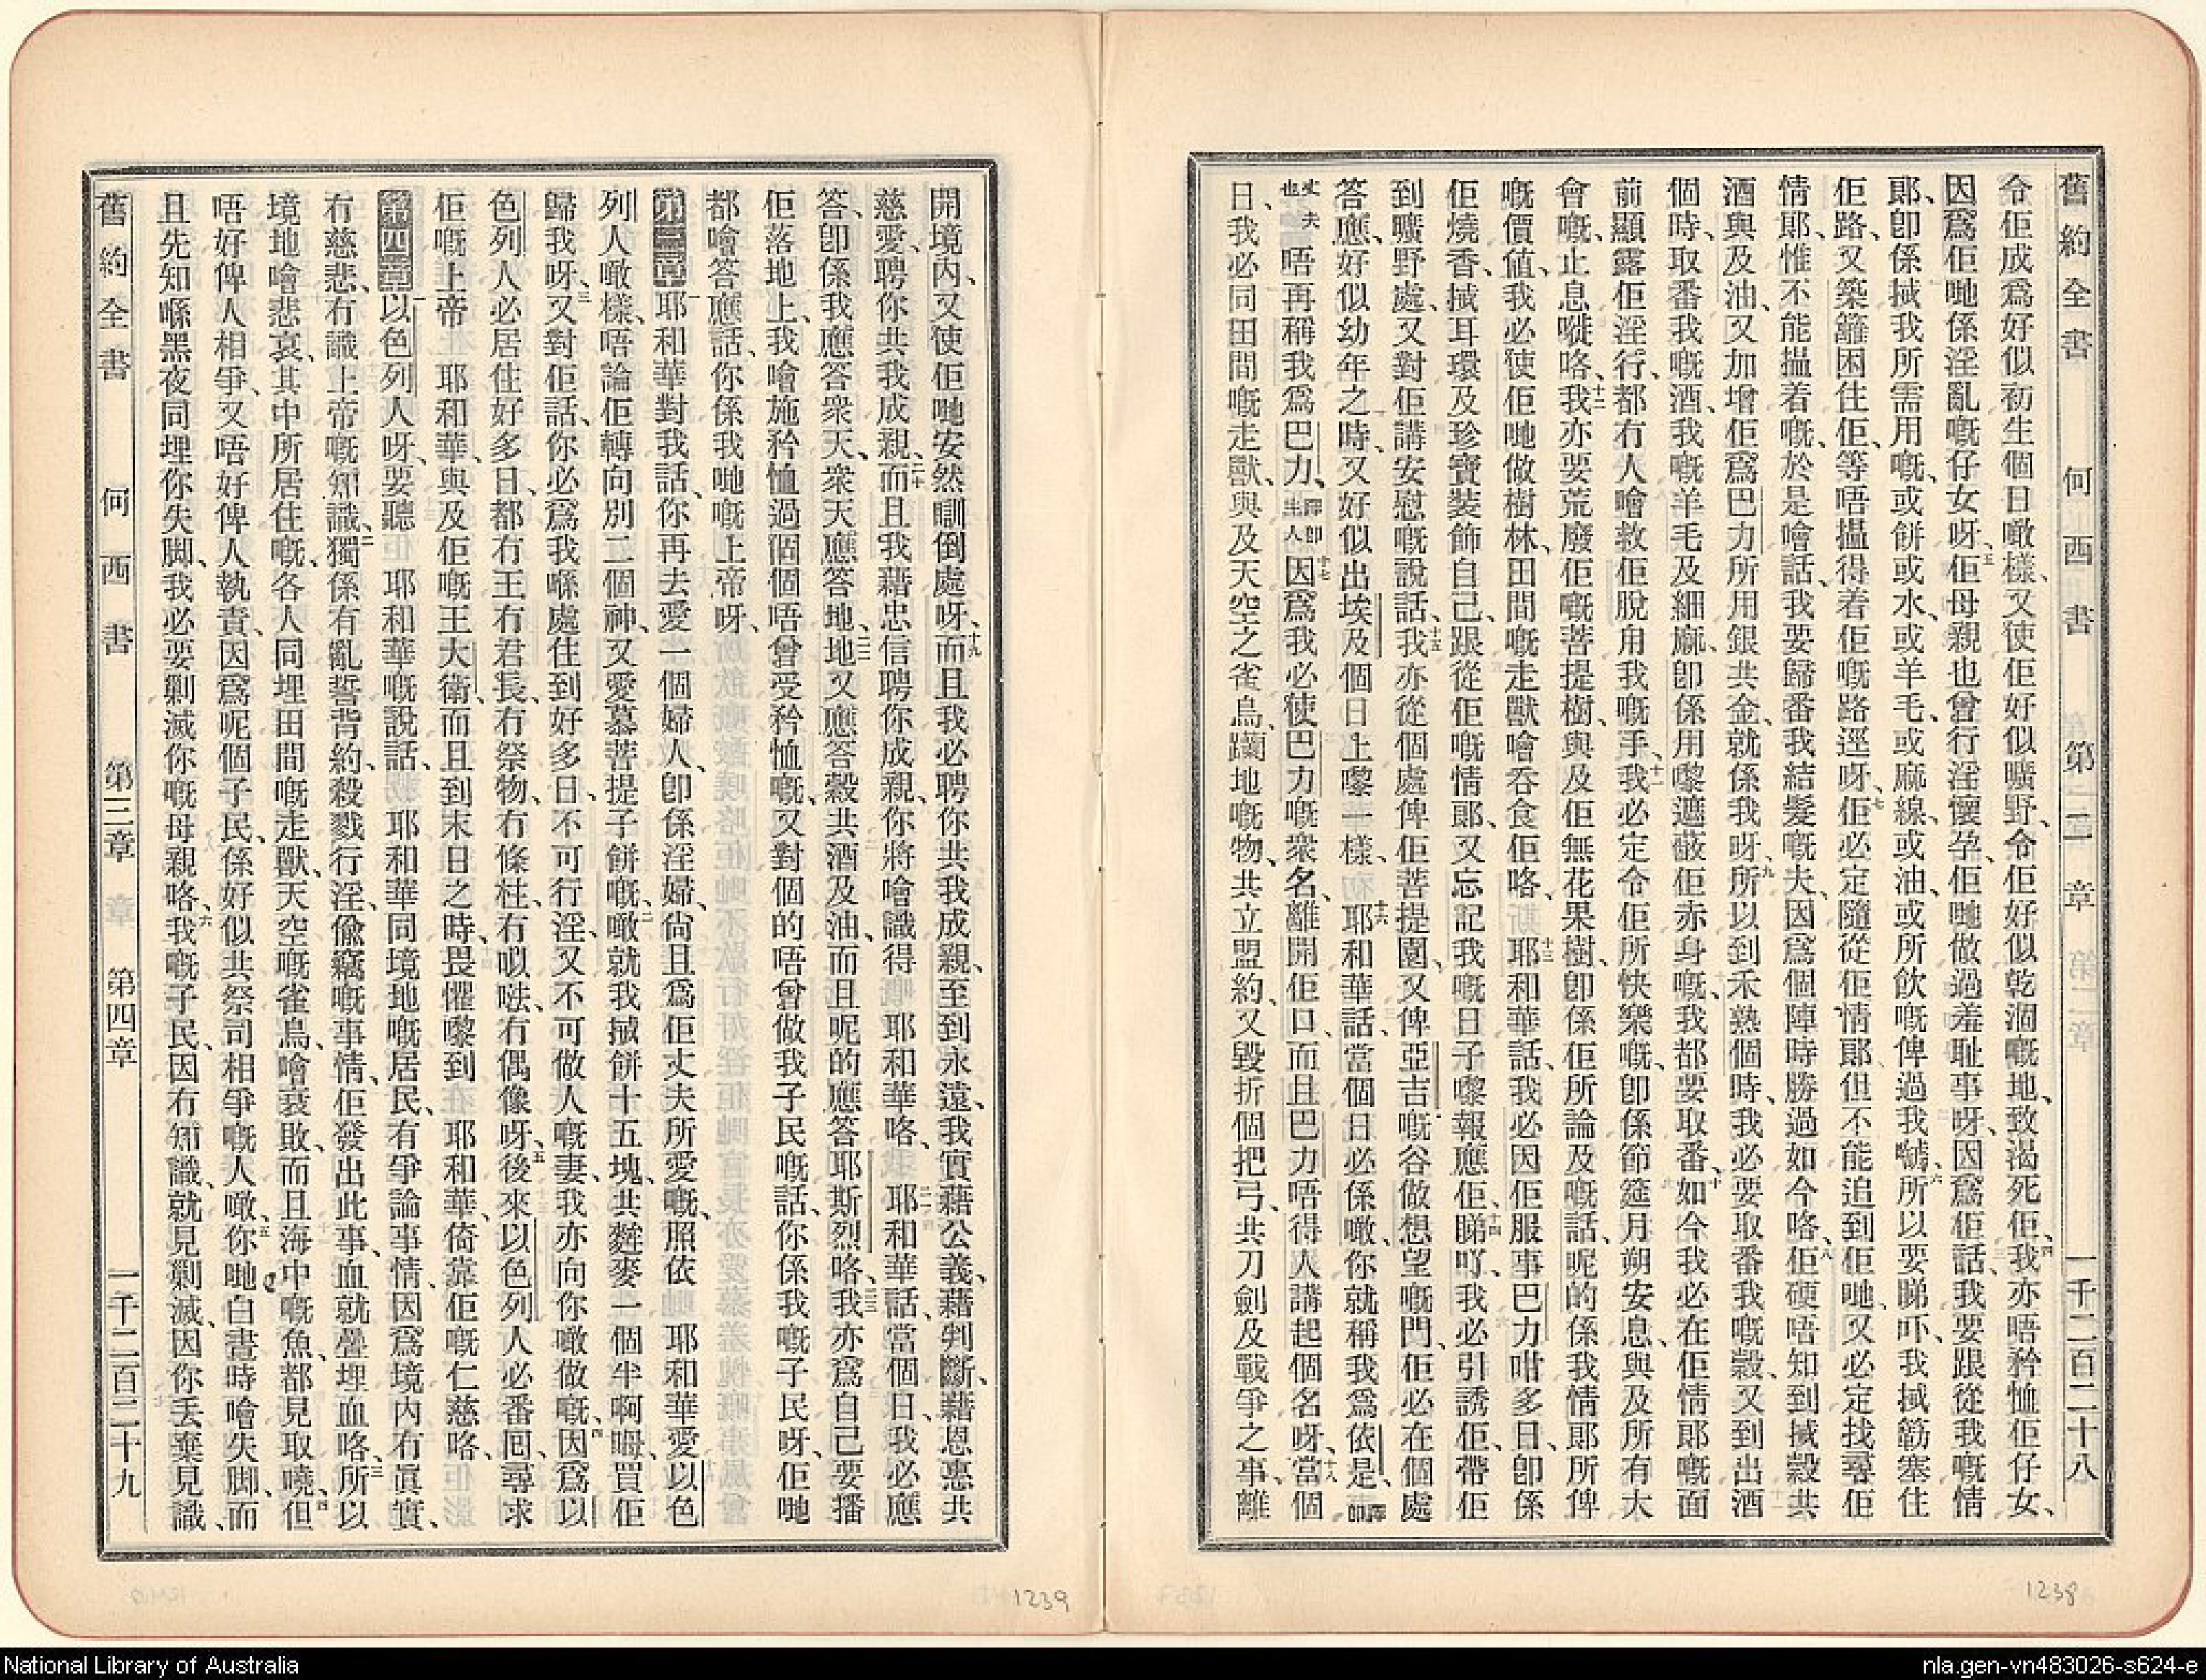 舊約全書 何西書 第二章 一千二百二十八
令佢成爲好似初生個日噉樣、又使佢好似曠野、令佢好似乾涸嘅地、致渴死佢、四我亦唔矜恤佢仔女、
因爲佢哋係淫亂嘅仔女呀、五佢母親也曾行淫懷孕、佢哋做過羞耻事呀、因爲佢話、我要跟從我嘅情
郎、卽係搣我所需用嘅、或餅或水、或羊毛、或麻線、或油、或所飲嘅俾過我嘑、六所以要睇吓、我搣簕塞住
佢路、又築籬困住佢、等唔揾得着佢嘅路逕呀、七佢必定隨從佢情郎、但不能追到佢哋、又必定找尋佢
情郎、惟不能揾着嘅、於是噲話、我要歸番我結髮嘅夫、因爲個陣時勝過如今咯、八佢硬唔知到搣穀共
酒與及油、又加增佢爲巴力所用銀共金、就係我呀、九所以到禾熟個時、我必要取番我嘅穀、又到出酒
個時、取番我嘅酒、我嘅羊毛及細蔴、卽係用嚟遮蔽佢赤身嘅、我都要取番、十如今我必在佢情郎嘅面
前顯露佢淫行、都冇人噲救佢脫用我嘅手、十一我必定令佢所快樂嘅、卽係節筵月朔安息、與及所有大
會嘅、止息嘥咯、十二我亦要荒廢佢嘅菩提樹、與及佢無花果樹、卽係佢所論及嘅話、呢的係我情郎所俾
嘅價值、我必使佢哋做樹林、田間嘅走獸噲吞食佢咯、十三耶和華話、我必因佢服事巴力咁多日、卽係
佢燒香、搣耳環及珍寶裝飾自己、跟從佢嘅情郎、又忘記我嘅日子嚟報應佢、十四睇吖、我必引誘佢、帶佢
到曠野處、又對佢講安慰嘅說話、十五我亦從個處俾佢菩提園、又俾亞吉嘅谷做想望嘅門、佢必在個處
答應、好似幼年之時、又好似出埃及個日上嚟一樣、十六耶和華話、當個日必係噉、你就稱我爲依是、譯卽
丈夫也唔再稱我爲巴力、譯卽主人十七因爲我必使巴力嘅衆名、離開佢口、而且巴力唔得人講起個名呀、十八當個
日、我必同田間嘅走獸、與及天空之雀鳥、躝地嘅物、共立盟約、又毀折個把弓、共刀劍及戰爭之事、離
1238
開境內、又使佢哋安然瞓倒處呀、十九而且我必聘你共我成親、至到永遠、我實藉公義、藉判斷、藉恩惠共
慈愛、聘你共我成親、二十而且我藉忠信聘你成親、你將噲識得 耶和華咯、二一耶和華話、當個日、我必應
答、卽係我應答衆天、衆天應答地、二二地又應答穀共酒及油、而且呢的應答耶斯烈咯、二三我亦爲自己要播
佢落地上、我噲施矜恤過個個唔曾受矜恤嘅、又對個的唔曾做我子民嘅話、你係我嘅子民呀、佢哋
都噲答應話、你係我哋嘅上帝呀、
第三章 一耶和華對我話、你再去愛一個婦人、卽係淫婦、尙且爲佢丈夫所愛嘅、照依 耶和華愛以色
列人噉樣、唔論佢轉向別二個神、又愛慕菩提子餅嘅、二噉就我搣餅十五塊、共麰麥一個半啊嘓、買佢
歸我呀、三又對佢話、你必爲我喺處住到好多日、不可行淫、又不可做人嘅妻、我亦向你噉做嘅、四因爲以
色列人必居住好多日、都冇王冇君長、冇祭物、冇條柱、冇㕽㖠、冇偶像呀、五後來以色列人必番囘尋求
佢嘅上帝 耶和華、與及佢嘅王大衛、而且到末日之時、畏懼嚟到 耶和華、倚靠佢嘅仁慈咯、
第四章 一以色列人呀、要聽 耶和華嘅說話、耶和華同境地嘅居民、有爭論事情、因爲境內冇眞實、
冇慈悲、冇識上帝嘅知識、二獨係有亂誓背約、殺戮行淫、偸竊嘅事情、佢發出此事、血就疊埋血咯、三所以
境地噲悲哀、其中所居住嘅、各人同埋田間嘅走獸、天空嘅雀鳥、噲衰敗、而且海中嘅魚、都見取嘵、四但
唔好俾人相爭、又唔好俾人執責、因爲呢個子民、係好似共祭司相爭嘅人噉、五你哋白晝時噲失脚、而
且先知喺黑夜同埋你失脚、我必要剿滅你嘅母親咯、六我嘅子民、因冇知識、就見剿滅、因你丟棄見識、
舊約全書 何西書 第三章 第四章 一千二百二十九
1239
National Library of Australia
nla.gen-vn483026-s624-e